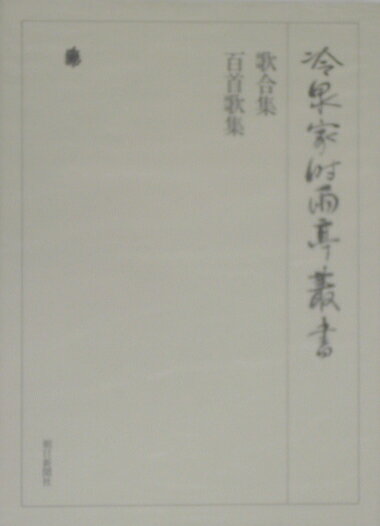 冷泉家時雨亭叢書
歌合集
百首歌集
朝日新聞社